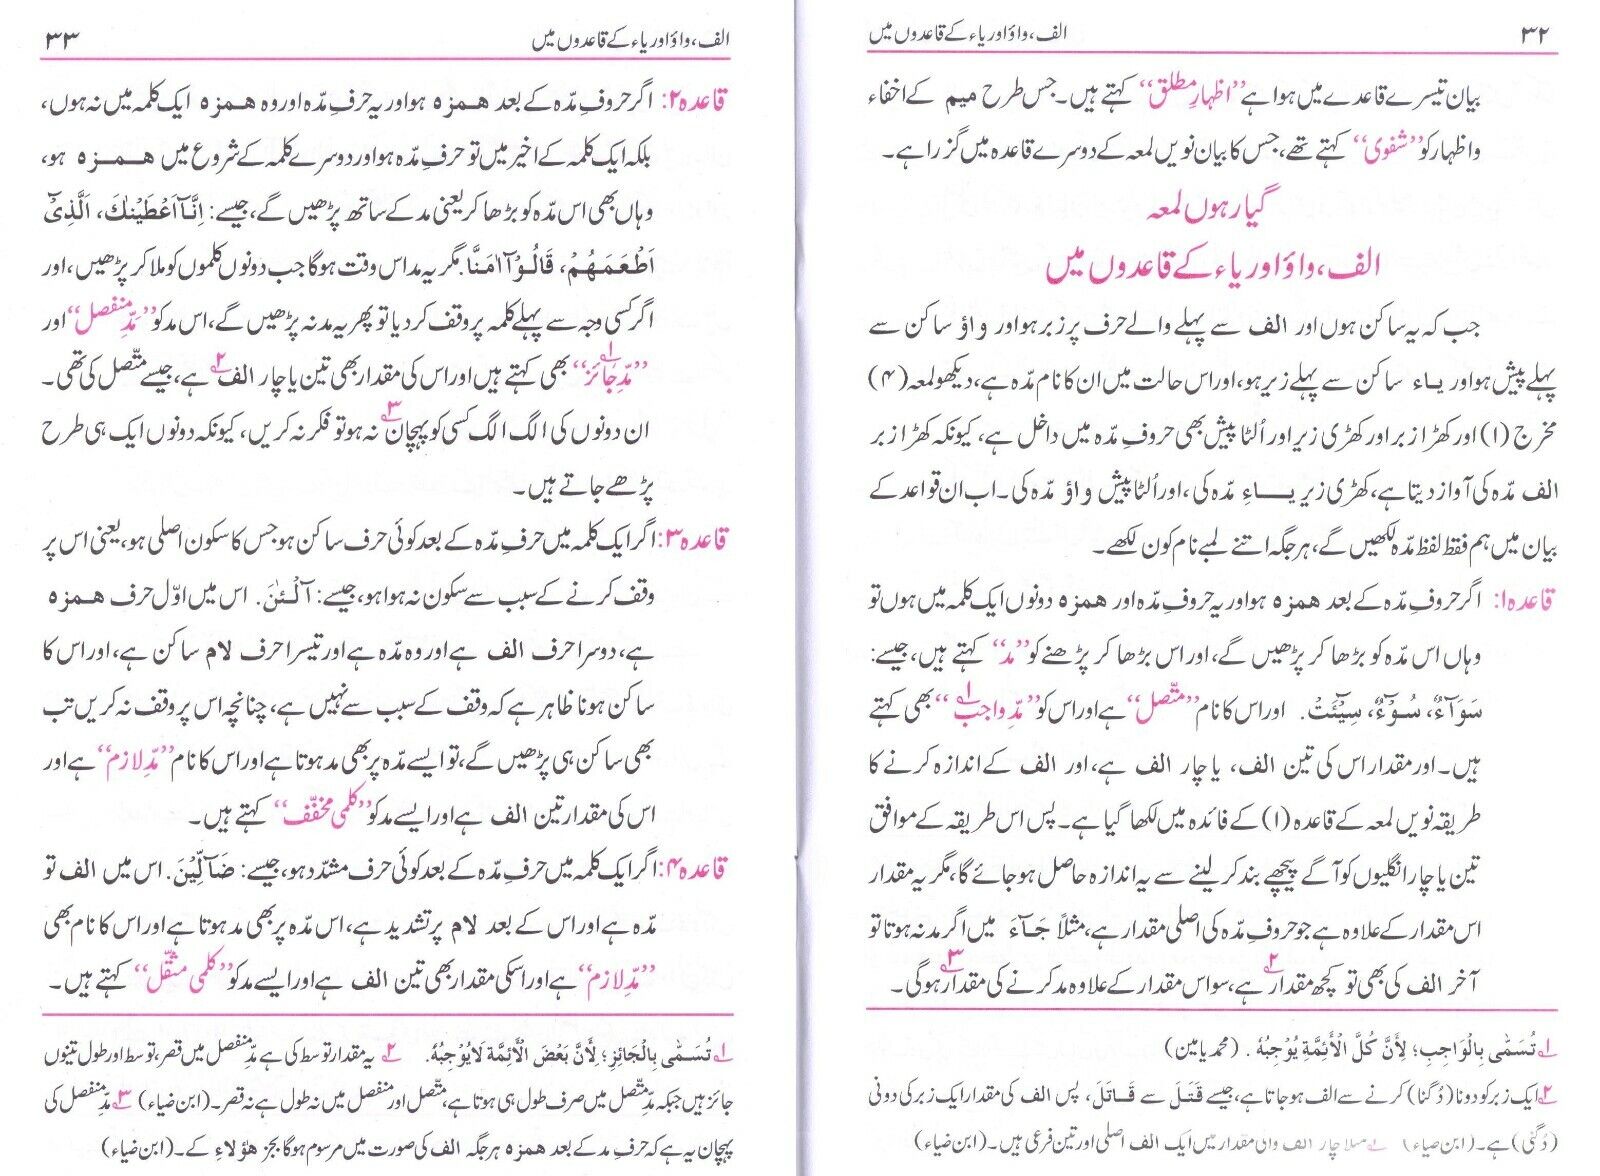 ۳۲
الف، واؤ اور یاء کے قاعدوں میں
بیان تیسرے قاعدے میں ہوا ہے ”اظہارِ مطلق“ کہتے ہیں۔ جس طرح میم کے اخفاء
و اظہار کو ”شفوی“ کہتے تھے، جس کا بیان نویں لمعہ کے دوسرے قاعدہ میں گزرا ہے۔
گیارہوں لمعہ
الف، واؤ اور یاء کے قاعدوں میں
جب کہ یہ ساکن ہوں اور الف سے پہلے والے حرف پر زبر ہو اور واؤ ساکن سے
پہلے پیش ہو اور یاء ساکن سے پہلے زیر ہو، اور اس حالت میں ان کا نام مدّہ ہے، دیکھو لمعہ (۴)
مخرج (۱) اور کھڑا زبر اور کھڑی زیر اور اُلٹا پیش بھی حروفِ مدّہ میں داخل ہے، کیونکہ کھڑا زبر
الف مدّہ کی آواز دیتا ہے، کھڑی زیر یاءِ مدّہ کی، اور اُلٹا پیش واؤ مدّہ کی۔ اب ان قواعد کے
بیان میں ہم فقط لفظ مدّہ لکھیں گے، ہر جگہ اتنے لمبے نام کون لکھے۔
قاعدہ ۱: اگر حروفِ مدّہ کے بعد ھمزہ ہو اور یہ حروفِ مدّہ اور ھمزہ دونوں ایک کلمہ میں ہوں تو
وہاں اس مدّہ کو بڑھا کر پڑھیں گے، اور اس بڑھا کر پڑھنے کو ”مد“ کہتے ہیں، جیسے:
سَوَآءٌ، سُوْٓءٌ، سِيْٓئَتْ. اور اس کا نام ”متّصل“ ہے اور اس کو ”مدِّ واجب“ ۱؎ بھی کہتے
ہیں۔ اور مقدار اس کی تین الف، یا چار الف ہے، اور الف کے اندازہ کرنے کا
طریقہ نویں لمعہ کے قاعدہ (۱) کے فائدہ میں لکھا گیا ہے۔ پس اس طریقہ کے موافق
تین یا چار انگلیوں کو آگے پیچھے بند کر لینے سے یہ اندازہ حاصل ہو جائے گا، مگر یہ مقدار
اس مقدار کے علاوہ ہے جو حروفِ مدّہ کی اصلی مقدار ہے، مثلاً جَآءَ میں اگر مد نہ ہوتا تو
آخر الف کی بھی تو کچھ مقدار ۲؎ ہے، سو اس مقدار کے علاوہ مد کرنے کی مقدار ۳؎ ہوگی۔
۱؎ تُسَمّٰى بِالْوَاجِبِ؛ لِأَنَّ كُلَّ الْأَئِمَّةِ يُوْجِبُهٗ. (محمد یامین)
۲؎ ایک زبر کو دونا (دُگنا) کرنے سے الف ہو جاتا ہے، جیسے قَتَلَ سے قَاتَلَ، پس الف کی مقدار ایک زبر کی دونی
(دُگنی) ہے۔ (ابن ضیاء) ۳؎ مثلا چار الف والی مقدار میں ایک الف اصلی اور تین فرعی ہیں۔ (ابن ضیاء)
الف، واؤ اور یاء کے قاعدوں میں
۳۳
قاعدہ ۲: اگر حروفِ مدّہ کے بعد ھمزہ ہو اور یہ حرفِ مدّہ اور وہ ھمزہ ایک کلمہ میں نہ ہوں،
بلکہ ایک کلمہ کے اخیر میں تو حرفِ مدّہ ہو اور دوسرے کلمہ کے شروع میں ھمزہ ہو،
وہاں بھی اس مدّہ کو بڑھا کر یعنی مد کے ساتھ پڑھیں گے، جیسے: اِنَّآ اَعْطَيْنٰكَ، اَلَّذِيْٓ
اَطْعَمَهُمْ، قَالُوْٓا اٰمَنَّا. مگر یہ مد اس وقت ہوگا جب دونوں کلموں کو ملا کر پڑھیں، اور
اگر کسی وجہ سے پہلے کلمہ پر وقف کر دیا تو پھر یہ مد نہ پڑھیں گے، اس مد کو ”مدِّ منفصل“ اور
”مدِّ جائز“ ۱؎ بھی کہتے ہیں اور اس کی مقدار بھی تین یا چار الف ۲؎ ہے، جیسے متّصل کی تھی۔
ان دونوں کی الگ الگ کسی کو پہچان ۳؎ نہ ہو تو فکر نہ کریں، کیونکہ دونوں ایک ہی طرح
پڑھے جاتے ہیں۔
قاعدہ ۳: اگر ایک کلمہ میں حرفِ مدّہ کے بعد کوئی حرف ساکن ہو جس کا سکون اصلی ہو، یعنی اس پر
وقف کرنے کے سبب سے سکون نہ ہوا ہو، جیسے: آلْـٰٔنَ. اس میں اوّل حرف ھمزہ
ہے، دوسرا حرف الف ہے اور وہ مدّہ ہے اور تیسرا حرف لام ساکن ہے، اور اس کا
ساکن ہونا ظاہر ہے کہ وقف کے سبب سے نہیں ہے، چنانچہ اس پر وقف نہ کریں تب
بھی ساکن ہی پڑھیں گے، تو ایسے مدّہ پر بھی مد ہوتا ہے اور اس کا نام ”مدِّ لازم“ ہے اور
اس کی مقدار تین الف ہے اور ایسے مد کو ”کلمی مخفّف“ کہتے ہیں۔
قاعدہ ۴: اگر ایک کلمہ میں حرفِ مدّہ کے بعد کوئی حرف مشدّد ہو، جیسے: ضَآلِّيْنَ. اس میں الف تو
مدّہ ہے اور اس کے بعد لام پر تشدید ہے، اس مدّہ پر بھی مد ہوتا ہے اور اس کا نام بھی
”مدِّ لازم“ ہے اور اسکی مقدار بھی تین الف ہے اور ایسے مد کو ”کلمی مثقّل“ کہتے ہیں۔
۱؎ تُسَمّٰى بِالْجَائِزِ؛ لِأَنَّ بَعْضَ الْأَئِمَّةَ لَايُوْجِبُهٗ. ۲؎ یہ مقدار توسط کی ہے مدِّ منفصل میں قصر، توسط اور طول تینوں
جائز ہیں جبکہ مدِّ متّصل میں صرف طول ہی ہوتا ہے، متّصل اور منفصل میں نہ طول ہے نہ قصر۔ (ابن ضیاء) ۳؎ مدِّ منفصل کی
پہچان یہ ہے کہ حرفِ مد کے بعد ھمزہ ہر جگہ الف کی صورت میں مرسوم ہوگا بجز هٰؤلاءِ کے۔ (ابن ضیاء)